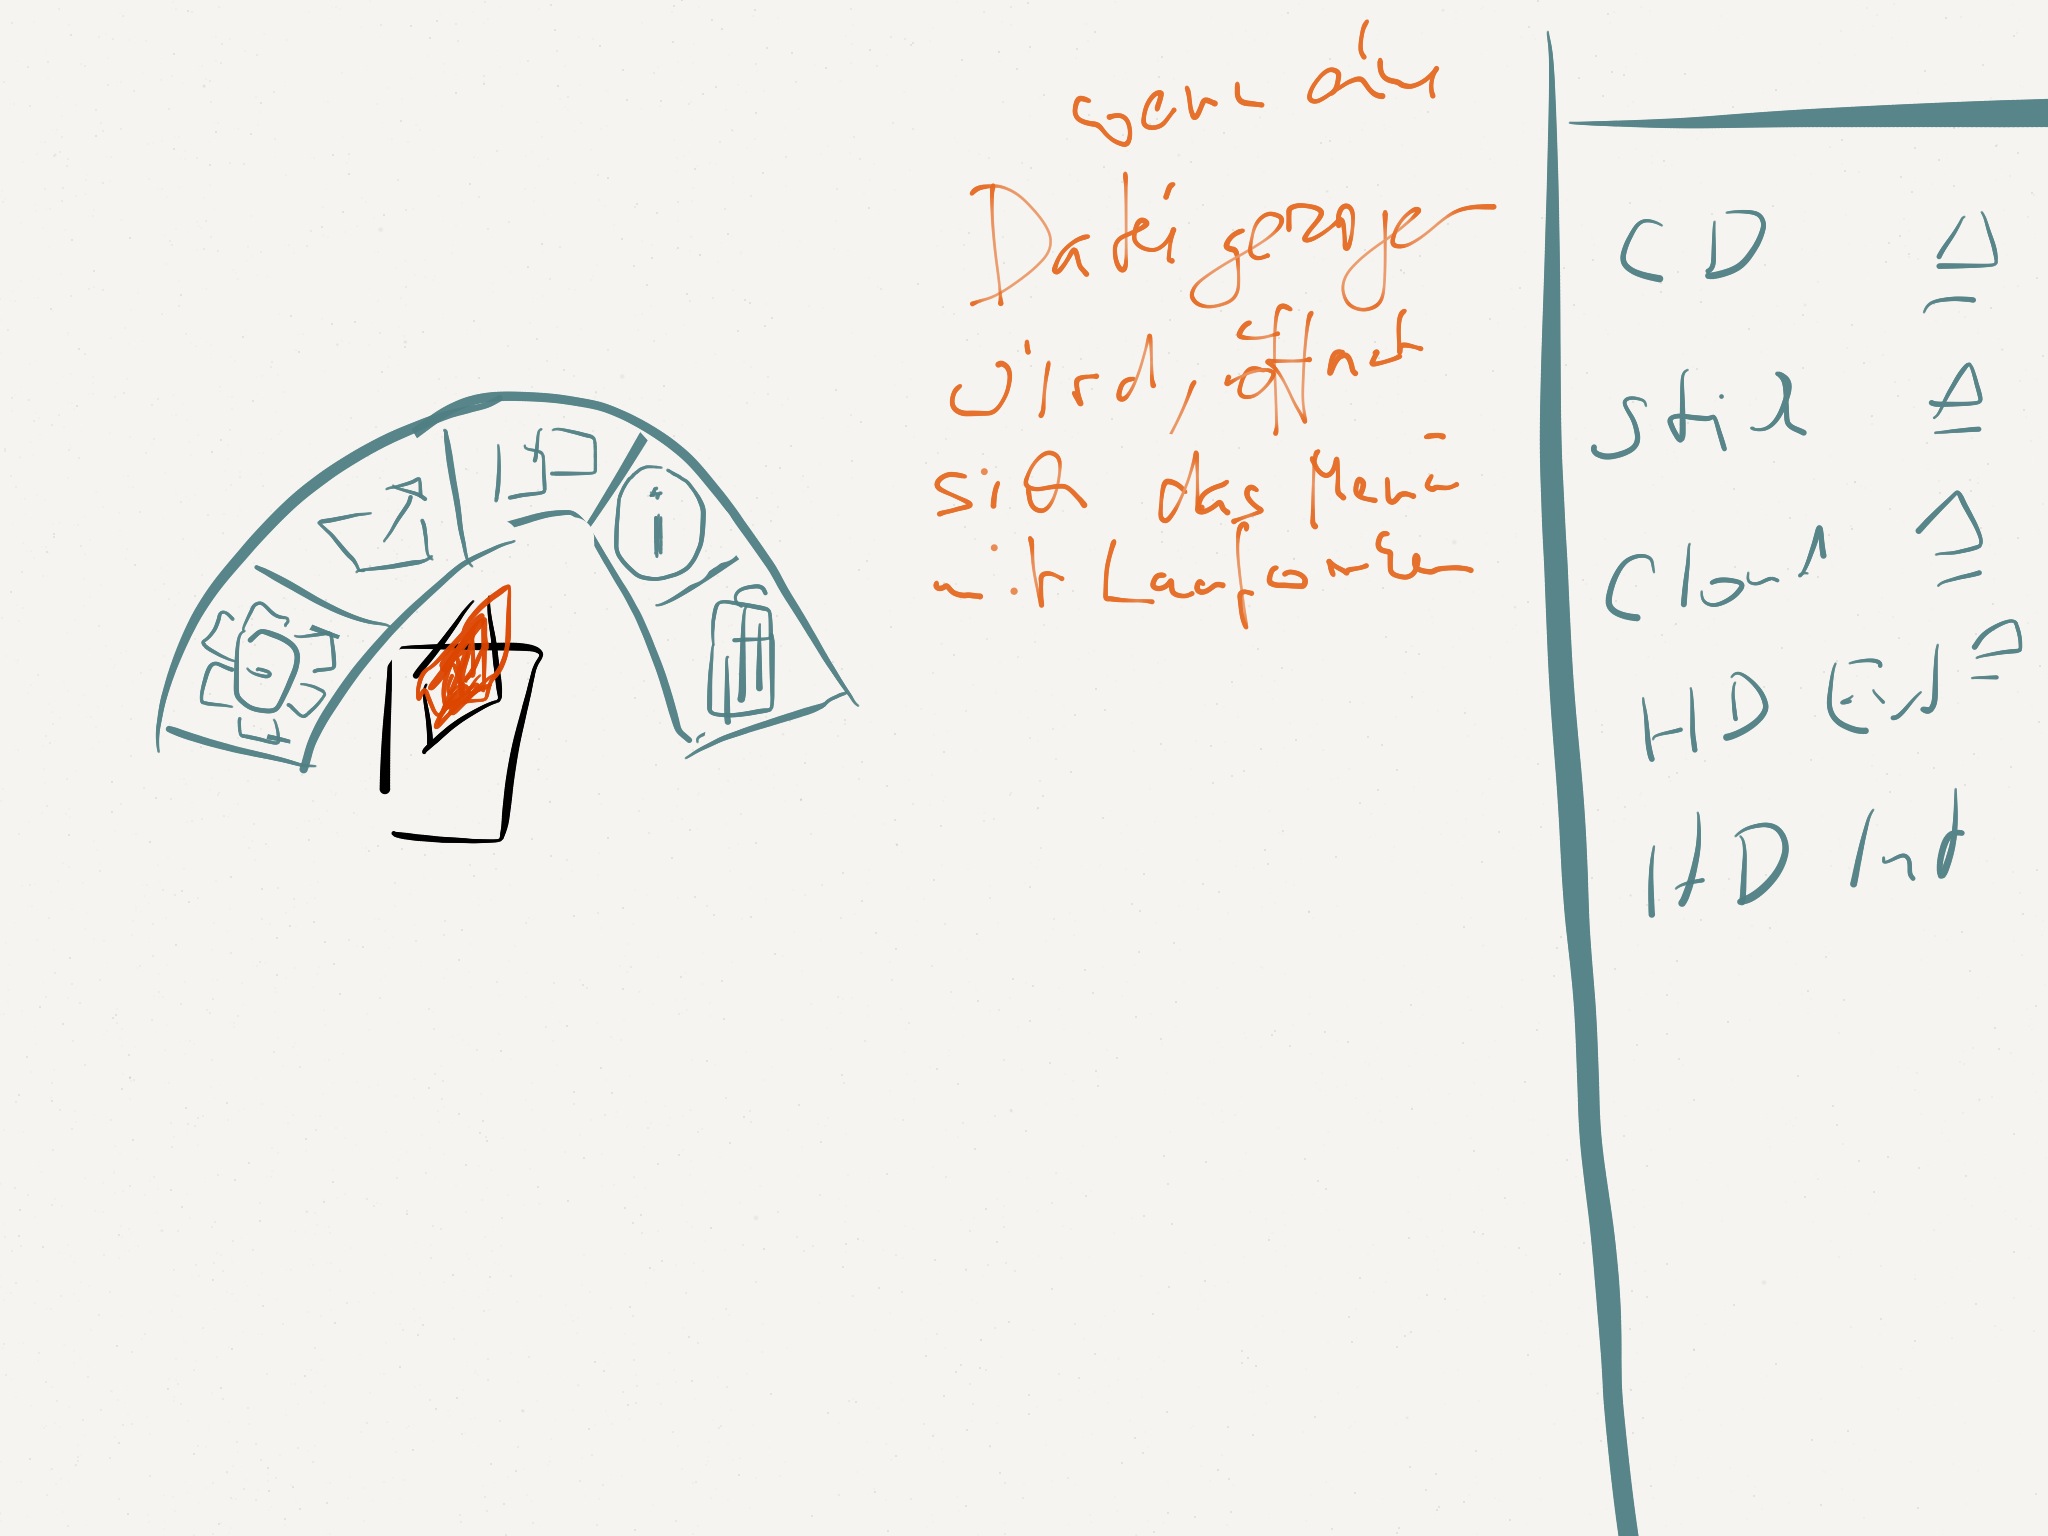 wenn eine
Datei gezogen
wird, öffnet
sich das Menü
mit Laufwerken
CD
Stick
Cloud
HD Ext
HD Int
i